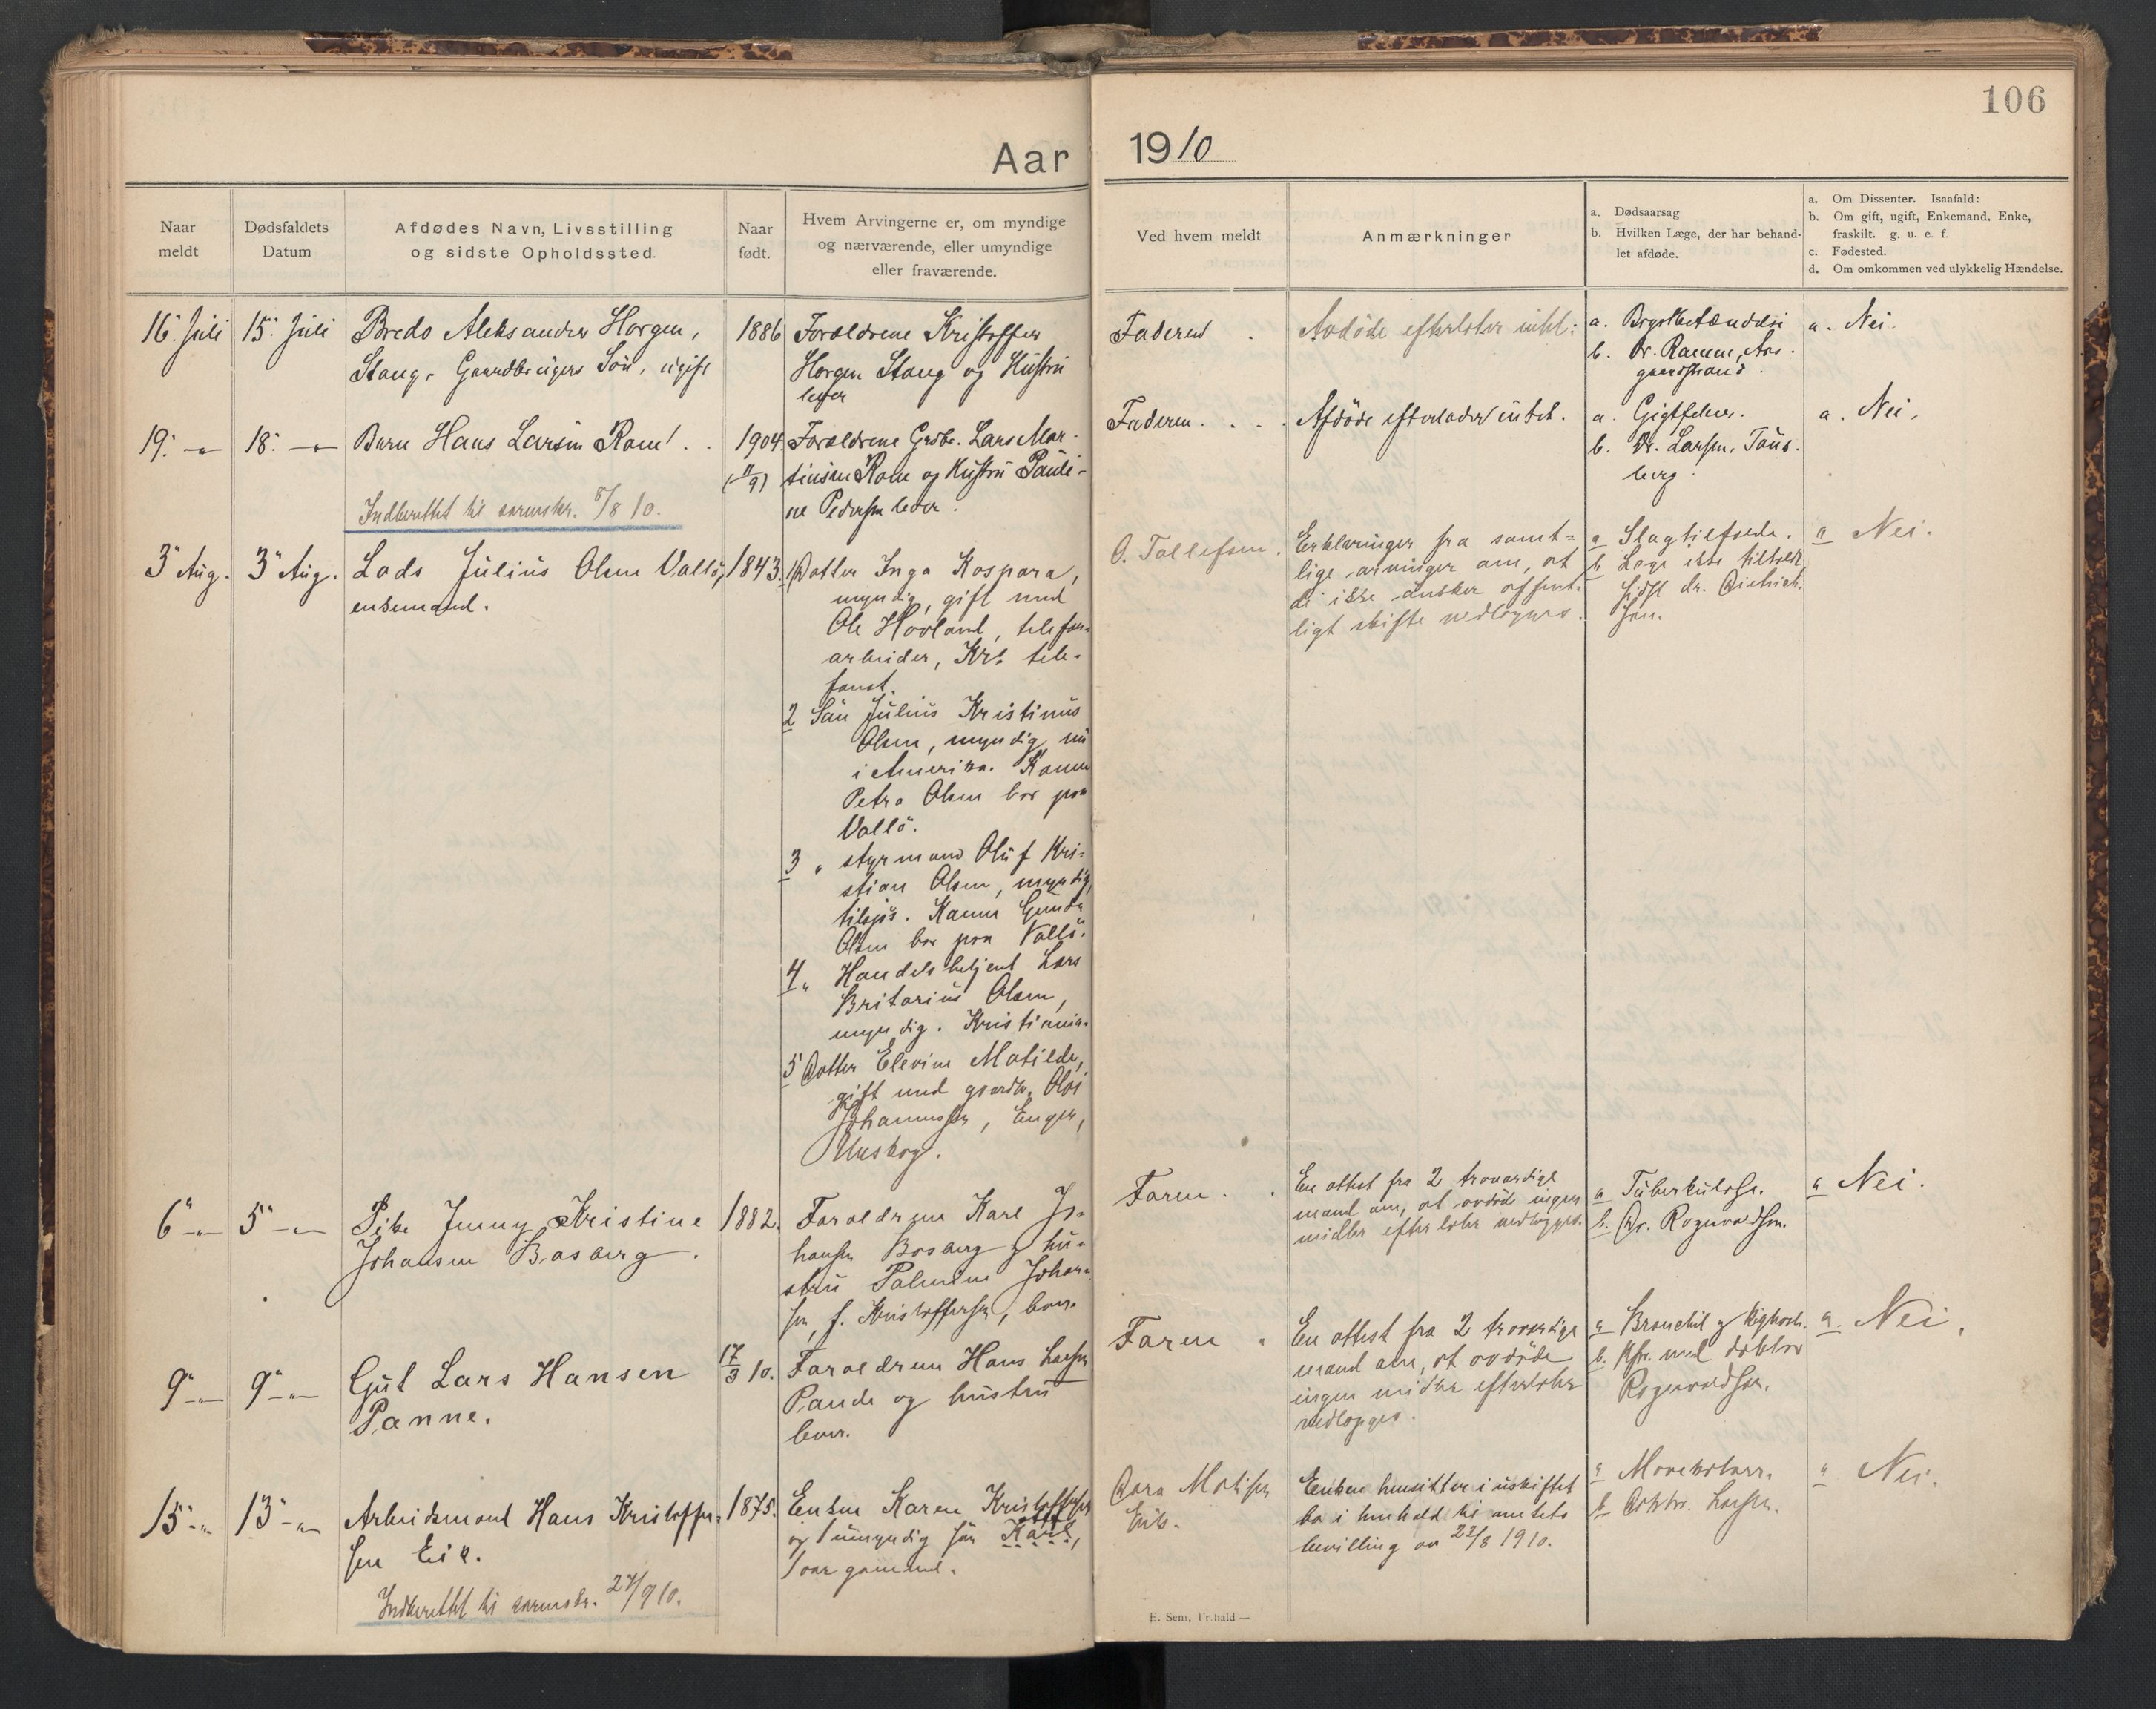 106
Aar 1910
Naar meldt
Dødsfaldets Datum
Afdødes Navn, Livsstilling og sidste Opholdssted.
Naar født.
Hvem Arvingerne er, om myndige og nærværende, eller umyndige eller fraværende.
Ved hvem meldt
Anmærkninger
a. Dødsaarsag
b. Hvilken Læge, der har behandlet afdøde.
a. Om Dissenter. Isaafald:
b. Om gift, ugift, Enkemand, Enke, fraskilt. g. u. e. f.
c. Fødested.
d. Om omkommen ved ulykkelig Hændelse.
16. Juli
15. Juli
Bredo Aleksander Horgen,
Stang, Gaardbrugers Søn, ugift
1886
Forældrene Kristoffer
Horgen Stang og Hustru
lever
Faderen .
Avdöde efterlater intet.
a. Brystbetændelse
b. Dr. Ramm, Aas-
gaardstrand.
a. Nei.
19. — "
18. — "
Barn Hans Larsen Rom! . .
1904
(11/9)
Forældrene Grdbr. Lars Mar-
tinsen Rom og Hustru Pauli-
ne Pedersen lever.
Faderen. . . .
Afdöde efterlader intet.
a. Gigtfeber.
b. Dr. Larsen, Töns-
berg.
a. Nei.
Indberettet til sorenskr. 8/8 10.
3" Aug.
3" Aug.
Lods Julius Olsen Vallö,
enkemand.
1843.
1 Datter Inga Kaspara,
myndig, gift med
Ole Hovland, telefon-
arbeider, Kra tele-
fonst.
2 Sön Julius Kristinus
Olsen, myndig, nu
i Amerika. Konen
Petra Olsen bor paa
Vallö.
3 " styrmand Oluf Kri-
stian Olsen, myndig,
tilsjös. Konen Gunda
Olsen bor paa Vallö.
4 " Handelsbetjent Lars
Britarius Olsen,
myndig. Kristiania.
5 Datter Elevine Matilde,
gift med gaardbr. Olai
Johannessen, Enger,
O. Tollefsen.
Erklæringer fra samt-
lige arvinger om, at
de ikke önsker offent-
ligt skifte vedlægges.
a Slagtilfælde.
b Læge ikke tilkaldt,
sidst dr. Dietrich-
son.
a Nei.
6" — "
5" — "
Pike Jenny Kristine
Johansen Basberg .
1882.
Forældrene Karl Jo-
hansen Basberg og hu-
stru Palmine Johan-
sen, f. Kristoffersen, lever.
Faren . .
En attest fra 2 troværdige
mænd om, at avdöde ingen
midler efterlater vedlægges.
a Tuberkulose.
b. Dr. Rogenvaldsen.
a Nei.
9" — "
9" — "
Gut Lars Hansen
Panne.
17/3 10.
Forældrene Hans Larsen
Pande og hustru
lever.
Faren "
En attest fra 2 troværdige
mænd om, at avdöde
ingen midler efterlater
vedlægges.
a Bronchit og kighoste.
b. Kfr. med doktor
Rogenvaldsen.
a. Nei.
15" — "
13" — "
Arbeidsmand Hans Kristoffer-
sen Eik.
1875.
Enken Karen Kristoffersen
og 1 umyndig sön Karl,
1 aar gammel.
Mathisen
Eik.
Enken hensitter i uskiftet
bo i henhold til amtets
bevilling av 22/8 1910.
a Mavekatarr.
b Doktor Larsen.
a Nei.
Indberettet til sorenskr. 27/9 10.
E. Sem, Fr.hald —